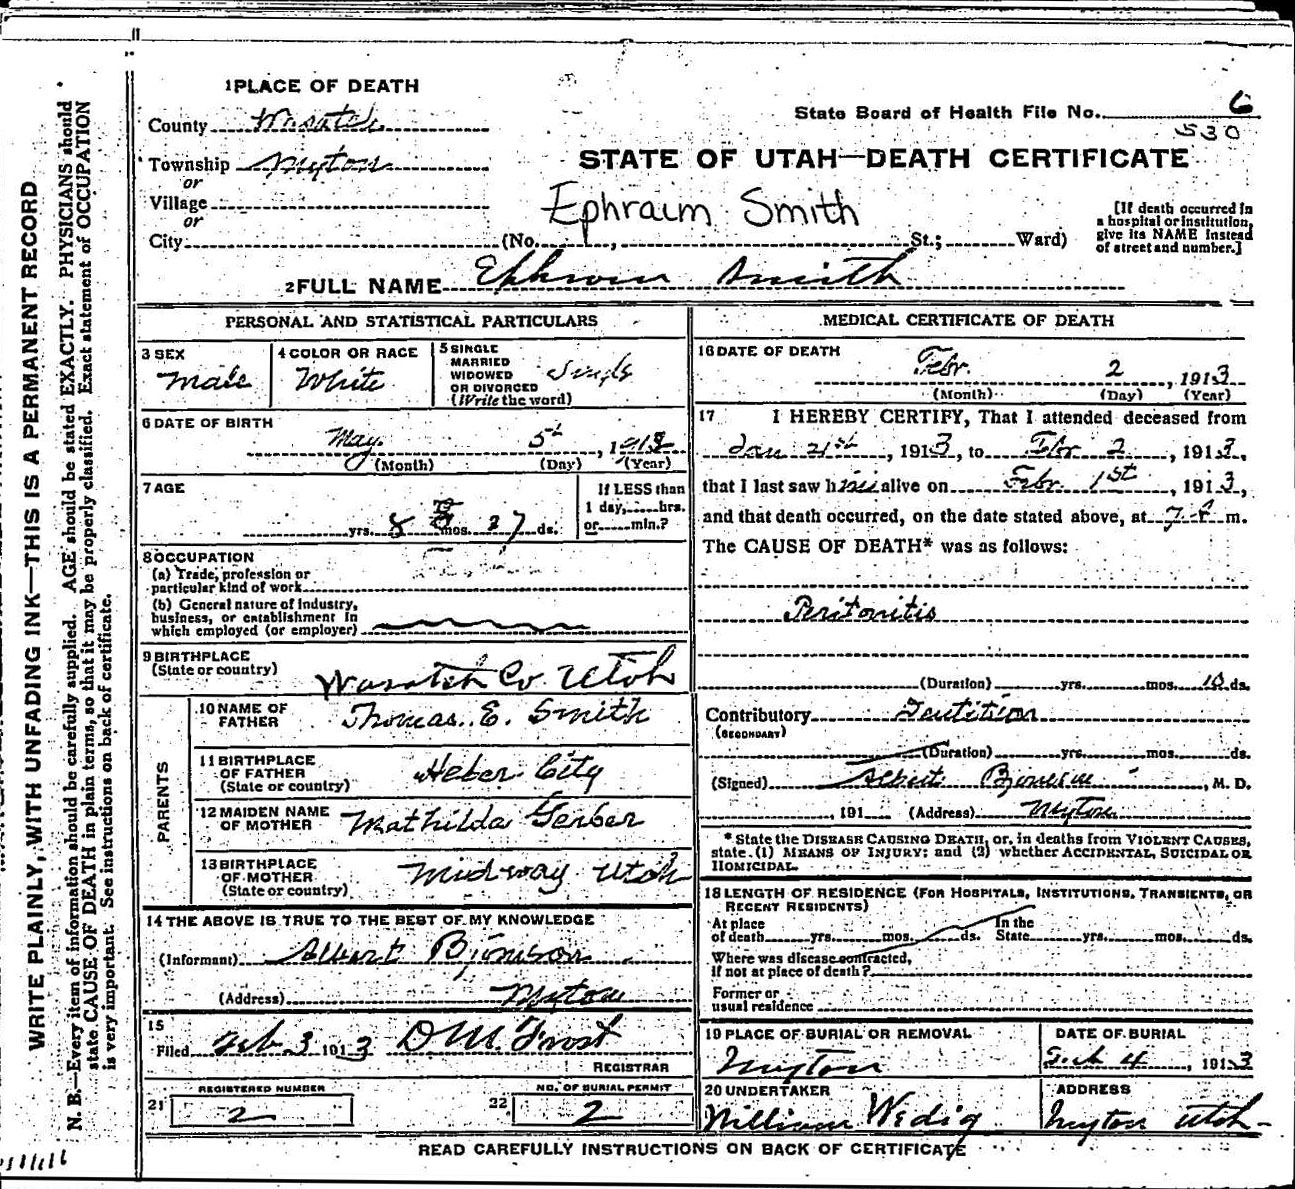 WRITE PLAINLY, WITH UNFADING INK—THIS IS A PERMANENT RECORD
N. B.—Every item of information should be carefully supplied. AGE should be stated EXACTLY. PHYSICIANS should
state CAUSE OF DEATH in plain terms, so that it may be properly classified. Exact statement of OCCUPATION
is very important. See instructions on back of certificate.
1 PLACE OF DEATH
County Wasatch
Township Myton
or
Village
or
City (No. , St.; Ward)
State Board of Health File No. 6
530
STATE OF UTAH—DEATH CERTIFICATE
Ephraim Smith
[If death occurred in
a hospital or institution,
give its NAME instead
of street and number.]
2 FULL NAME Ephraim Smith
PERSONAL AND STATISTICAL PARTICULARS
3 SEX
Male
4 COLOR OR RACE
White
5 SINGLE
MARRIED
WIDOWED
OR DIVORCED
(Write the word)
Single
6 DATE OF BIRTH
May 5th, 1912
(Month) (Day) (Year)
7 AGE
yrs. 8 mos. 27 ds.
If LESS than
1 day, hrs.
or min.?
8 OCCUPATION
(a) Trade, profession or
particular kind of work
(b) General nature of Industry,
business, or establishment in
which employed (or employer)
9 BIRTHPLACE
(State or country)
Wasatch Co Utah
PARENTS
10 NAME OF
FATHER
Thomas E. Smith
11 BIRTHPLACE
OF FATHER
(State or country)
Heber City
12 MAIDEN NAME
OF MOTHER
Mathilda Gerber
13 BIRTHPLACE
OF MOTHER
(State or country)
Midway Utah
14 THE ABOVE IS TRUE TO THE BEST OF MY KNOWLEDGE
(Informant) Albert Bjornson
(Address) Myton
15
Filed Feb 3 1913 D M. Frost
REGISTRAR
REGISTERED NUMBER
21 2
NO. OF BURIAL PERMIT
22 2
MEDICAL CERTIFICATE OF DEATH
16 DATE OF DEATH
Febr. 2, 1913
(Month) (Day) (Year)
17 I HEREBY CERTIFY, That I attended deceased from
Jan 21st, 1913, to Febr 2, 1913,
that I last saw him alive on Febr. 1st, 1913,
and that death occurred, on the date stated above, at 7 m.
The CAUSE OF DEATH* was as follows:
Peritonitis
(Duration) yrs. mos. 10 ds.
Contributory Dentition
(SECONDARY)
(Duration) yrs. mos. ds.
(Signed) Albert, M. D.
, 191 (Address) Myton
*State the DISEASE CAUSING DEATH, or, in deaths from VIOLENT CAUSES,
state (1) MEANS OF INJURY; and (2) whether ACCIDENTAL, SUICIDAL OR
HOMICIDAL.
18 LENGTH OF RESIDENCE (FOR HOSPITALS, INSTITUTIONS, TRANSIENTS, OR
RECENT RESIDENTS)
At place In the
of death yrs. mos. ds. State yrs. mos. ds.
Where was disease contracted,
if not at place of death?
Former or
usual residence
19 PLACE OF BURIAL OR REMOVAL
Myton
DATE OF BURIAL
Feb 4, 1913
20 UNDERTAKER
William Wedig
ADDRESS
Myton Utah
READ CAREFULLY INSTRUCTIONS ON BACK OF CERTIFICATE